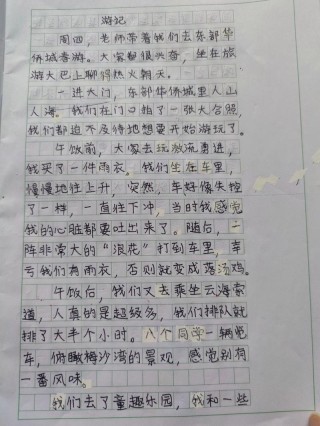 游记
周四，老师带着我们去东部华
侨城春游。大家都很兴奋，坐在旅
游大巴上聊得热火朝天。
一进大门，东部华侨城里人山
人海。我们在门口拍了一张大合照，
我们都迫不及待地想要开始游玩了。
午饭前，大家去玩激流勇进，
我买了一件雨衣。我们坐在车里，
慢慢地往上升，突然，车好像失控
了一样，一直往下冲，当时我感觉
我的心脏都要吐出来了。随后，一
阵非常大的“浪花”打到车里，幸
亏我们有雨衣，否则就变成落汤鸡。
午饭后，我们又去乘坐云海索
道，人真的是超级多，我们排队就
排了大半个小时。八个同学一辆缆
车，俯瞰梅沙湾的景观，感觉别有
一番风味。
我们去了童趣乐园，我和一些